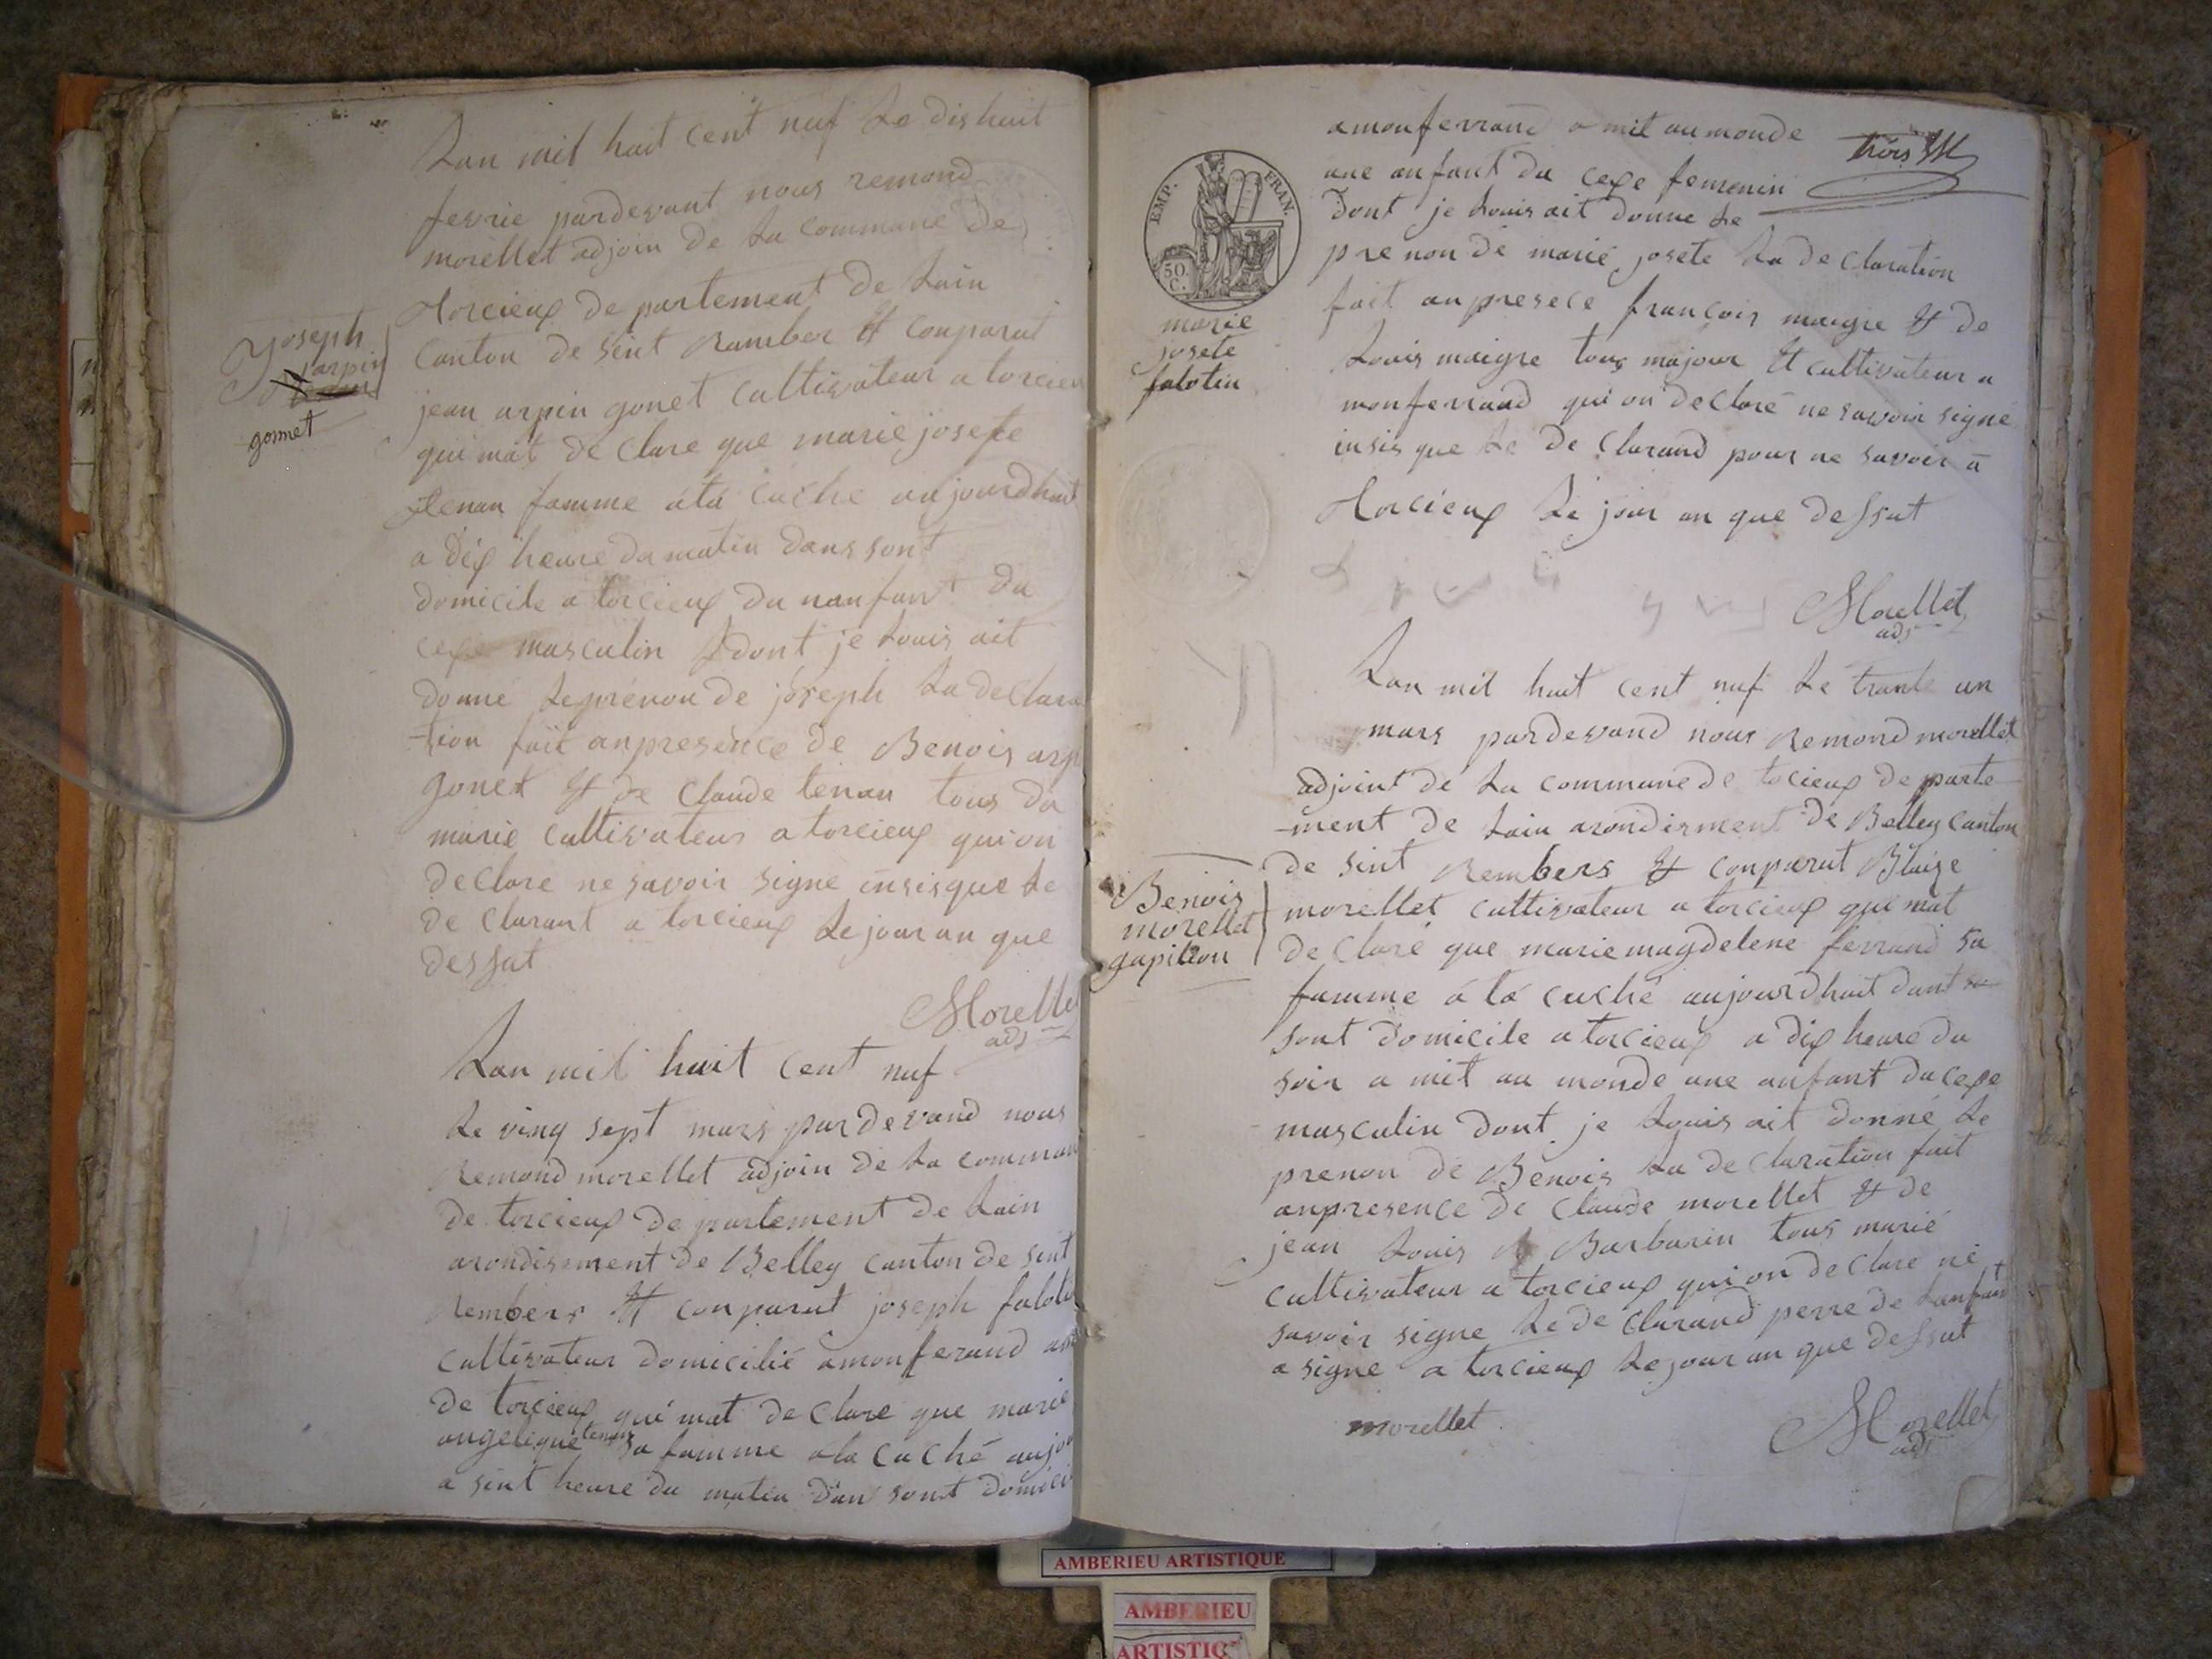 Lan mil huit cent nuf Le dishuit
fevrie pardevant nous remond
morellet adjoin de La commune de
torcieux departement de Lain
Joseph
arpin
gonnet
canton de sint Ramber Et conparut
jean arpin gonet cultivateur a torcieu
qui mat declare que marie josefe
tenan famme a la cuche aujourdhuit
a dix heure du matin dans sont
domicile a torcieux du nanfant du
cexe masculin dont je Louis ait
donné Le prénon de joseph La declara
-tion fait anpresence de Benois arp
gonet Et de Claude tenan tous du
marie cultivateur a torcieux qui on
declare ne savoir signe insisque Le
declarant a torcieux Le jour an que
dessut
Morellet
adj
Lan mil huit cent nuf
Le ving sept mars pardevand nous
Remond morellet adjoin de La commun
de torcieux departement de Lain
arondisment de Belley canton de sint
Rembers Et conparut joseph faloti
cultivateur domicilié a monferand
de torcieux qui mat declare que marie
angelique tenan sa famme a la cuché aujou
a sint heure du matin dan sont domici
EMP. FRAN.
50.
C.
marie
josete
falotin
trois
a monferrand a mit au monde
une anfant du cexe femenin
Dont je Louis ait donne Le
prenon de marie josete La declaration
fait anpresece françois maigre Et de
Louis maigre tous majour Et cultivateur a
monferrand qui on declaré ne savoir signé
insis que Le declarand pour ne savoir a
torcieux Le jour an que dessut
Morellet
adj
Lan mil huit cent nuf Le trante un
mars pardevand nous Remond morellet
adjoint de La commune de tocieux departe
-ment de Lain arondisment de Belley canton
de sint Rembers Et conparut Blaize
Benois
morellet
gapillon
morellet cultivateur a torcieux qui mat
declaré que marie magdelene ferrand sa
famme á lá cuché aujourdhuit dant
sont domicile a torcieux a dix heure du
soir a mit au monde une anfant du cexe
masculin dont je Louis ait donné Le
prenon de Benois La declaration fait
anpresence de Claude morellet Et de
jean Louis Barbarin tous marié
cultivateur a torcieux qui on declare ne
savoir signe Le declarand perre de Lanfant
a signe a torcieux Le jour an que dessut
morellet
Morellet
adj
AMBERIEU ARTISTIQUE
AMBERIEU
ARTISTIQ